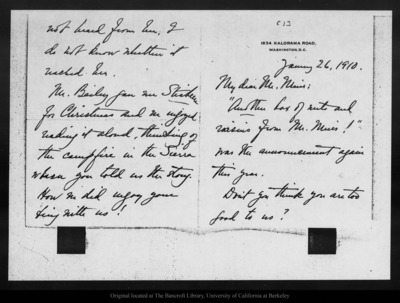 C13
1834 KALORAMA ROAD,
WASHINGTON, D.C.
January 26, 1910.
My dear Mr. Muir:
"Another box of nuts and
raisins from Mr. Muir!"
was the announcement again
this year.
Don't you think you are too
good to us?
not heard from her, I
do not know whether it
reached her.
Mr. Bailey gave me Stickeen
for Christmas and we enjoyed
reading it aloud, thinking of
the campfire in the Sierra
where you told us the story.
How we did enjoy your
being with us!
Original located at The Bancroft Library, University of California at Berkeley